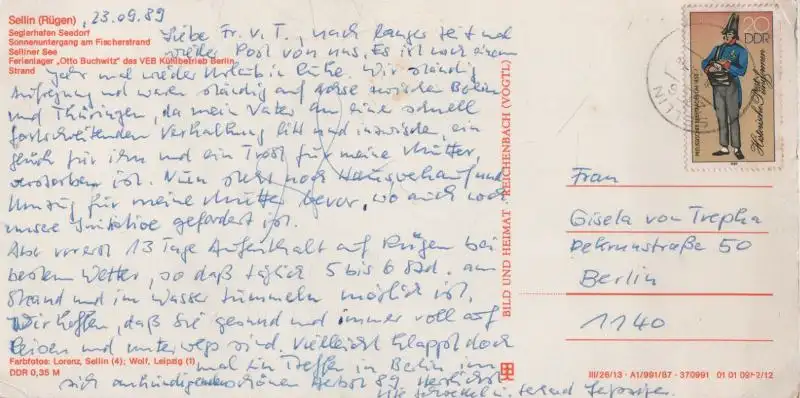 Sellin (Rügen)
Seglerhafen Seedorf
Sonnenuntergang am Fischerstrand
Selliner See
Ferienlager „Otto Buchwitz“ das VEB Kühlbetrieb Berlin
Strand
, 23.09.89
Liebe Fr. v. T., nach langer Zeit mal
wieder Post von uns. Es ist nach einem
Jahr mal wieder Urlaub in Ruhe. Wir ständig
Aufregung und waren ständig auf Achse zwischen Berlin
und Thüringen, da mein Vater an eine schnell
fortschreitenden Verkalkung litt und inzwischen, ein
Glück für ihn und ein Trost für meine Mutter,
verstorben ist. Nun steht noch Hausverkauf und
Umzug für meine Mutter bevor, wo auch noch
unsere Initiative gefordert ist.
Aber vorerst 13 Tage Aufenthalt auf Rügen bei
bestem Wetter, so daß täglich 5 bis 6 Std. am
Strand und im Wasser tummeln möglich ist.
Wir hoffen, daß Sie gesund und immer voll auf
Reisen und unterwegs sind. Vielleicht klappt doch
mal ein Treffen in Berlin im
sich ankündigenden schönen Herbst 89. Herzlichst
Farbfotos: Lorenz, Sellin (4); Wolf, Leipzig (1)
DDR 0,35 M
BILD UND HEIMAT REICHENBACH (VOGTL)
20
DDR
Historische Postuniformen
SELLIN
Frau
Gisela von Trepka
Dehrnstraße 50
Berlin
1140
III/26/13 · A1/991/87 · 370991 01 01 092/12